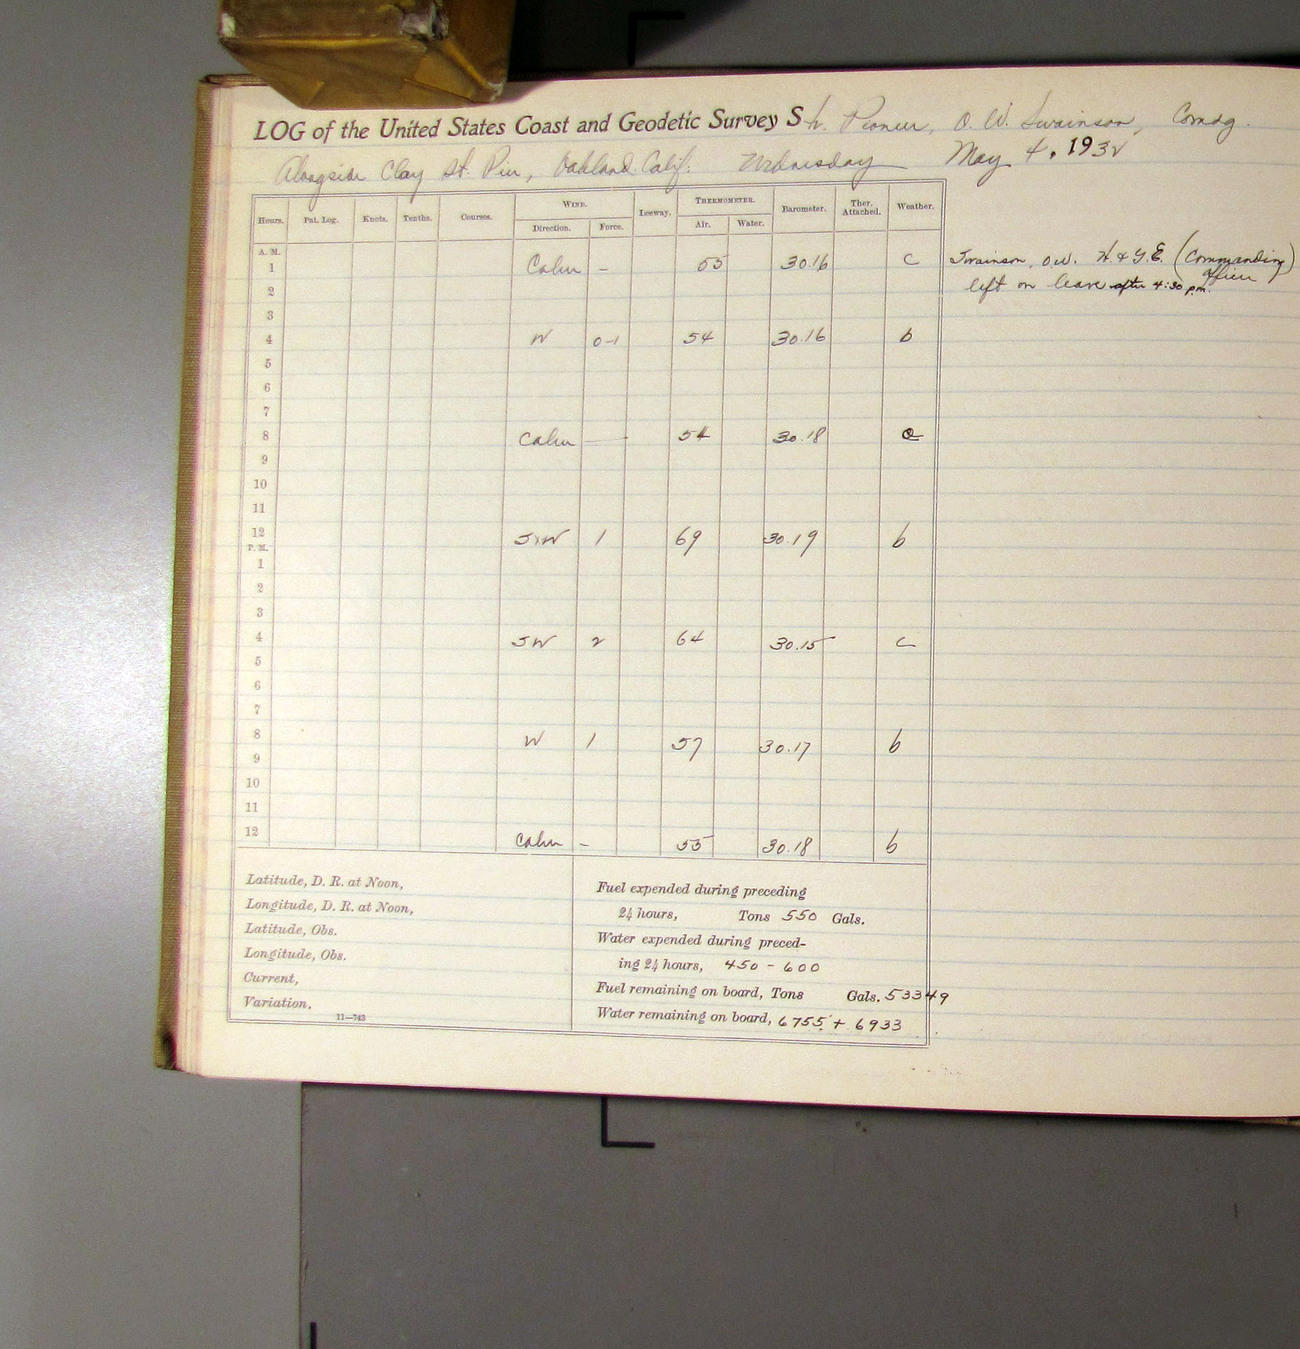 LOG of the United States Coast and Geodetic Survey Sh. Pioneer, O. W. Swainson, Comdg.
Alongside Clay St. Pier, Oakland. Calif. Wednesday May 4, 1932
Hours. Pat. Log. Knots. Tenths. Courses. WIND. Leeway. THERMOMETER. Barometer. Ther. Attached. Weather.
Direction. Force. Air. Water.
A. M.
1 Calm - 55 30.16 c
2
3
4 W 0-1 54 30.16 b
5
6
7
8 Calm — 54 30.18
9
10
11
12 SW 1 69 30.19 b
P. M.
1
2
3
4 SW 2 64 30.15 c
5
6
7
8 W 1 57 30.17 b
9
10
11
12 Calm - 55 30.18 b
Swainson, O.W. H. & G.E. (Commanding officer)
left on leave after 4:30 p.m.
Latitude, D. R. at Noon,
Longitude, D. R. at Noon,
Latitude, Obs.
Longitude, Obs.
Current,
Variation.
11—743
Fuel expended during preceding
24 hours, Tons 550 Gals.
Water expended during preced-
ing 24 hours, 450 - 600
Fuel remaining on board, Tons Gals. 53349
Water remaining on board, 6755 + 6933